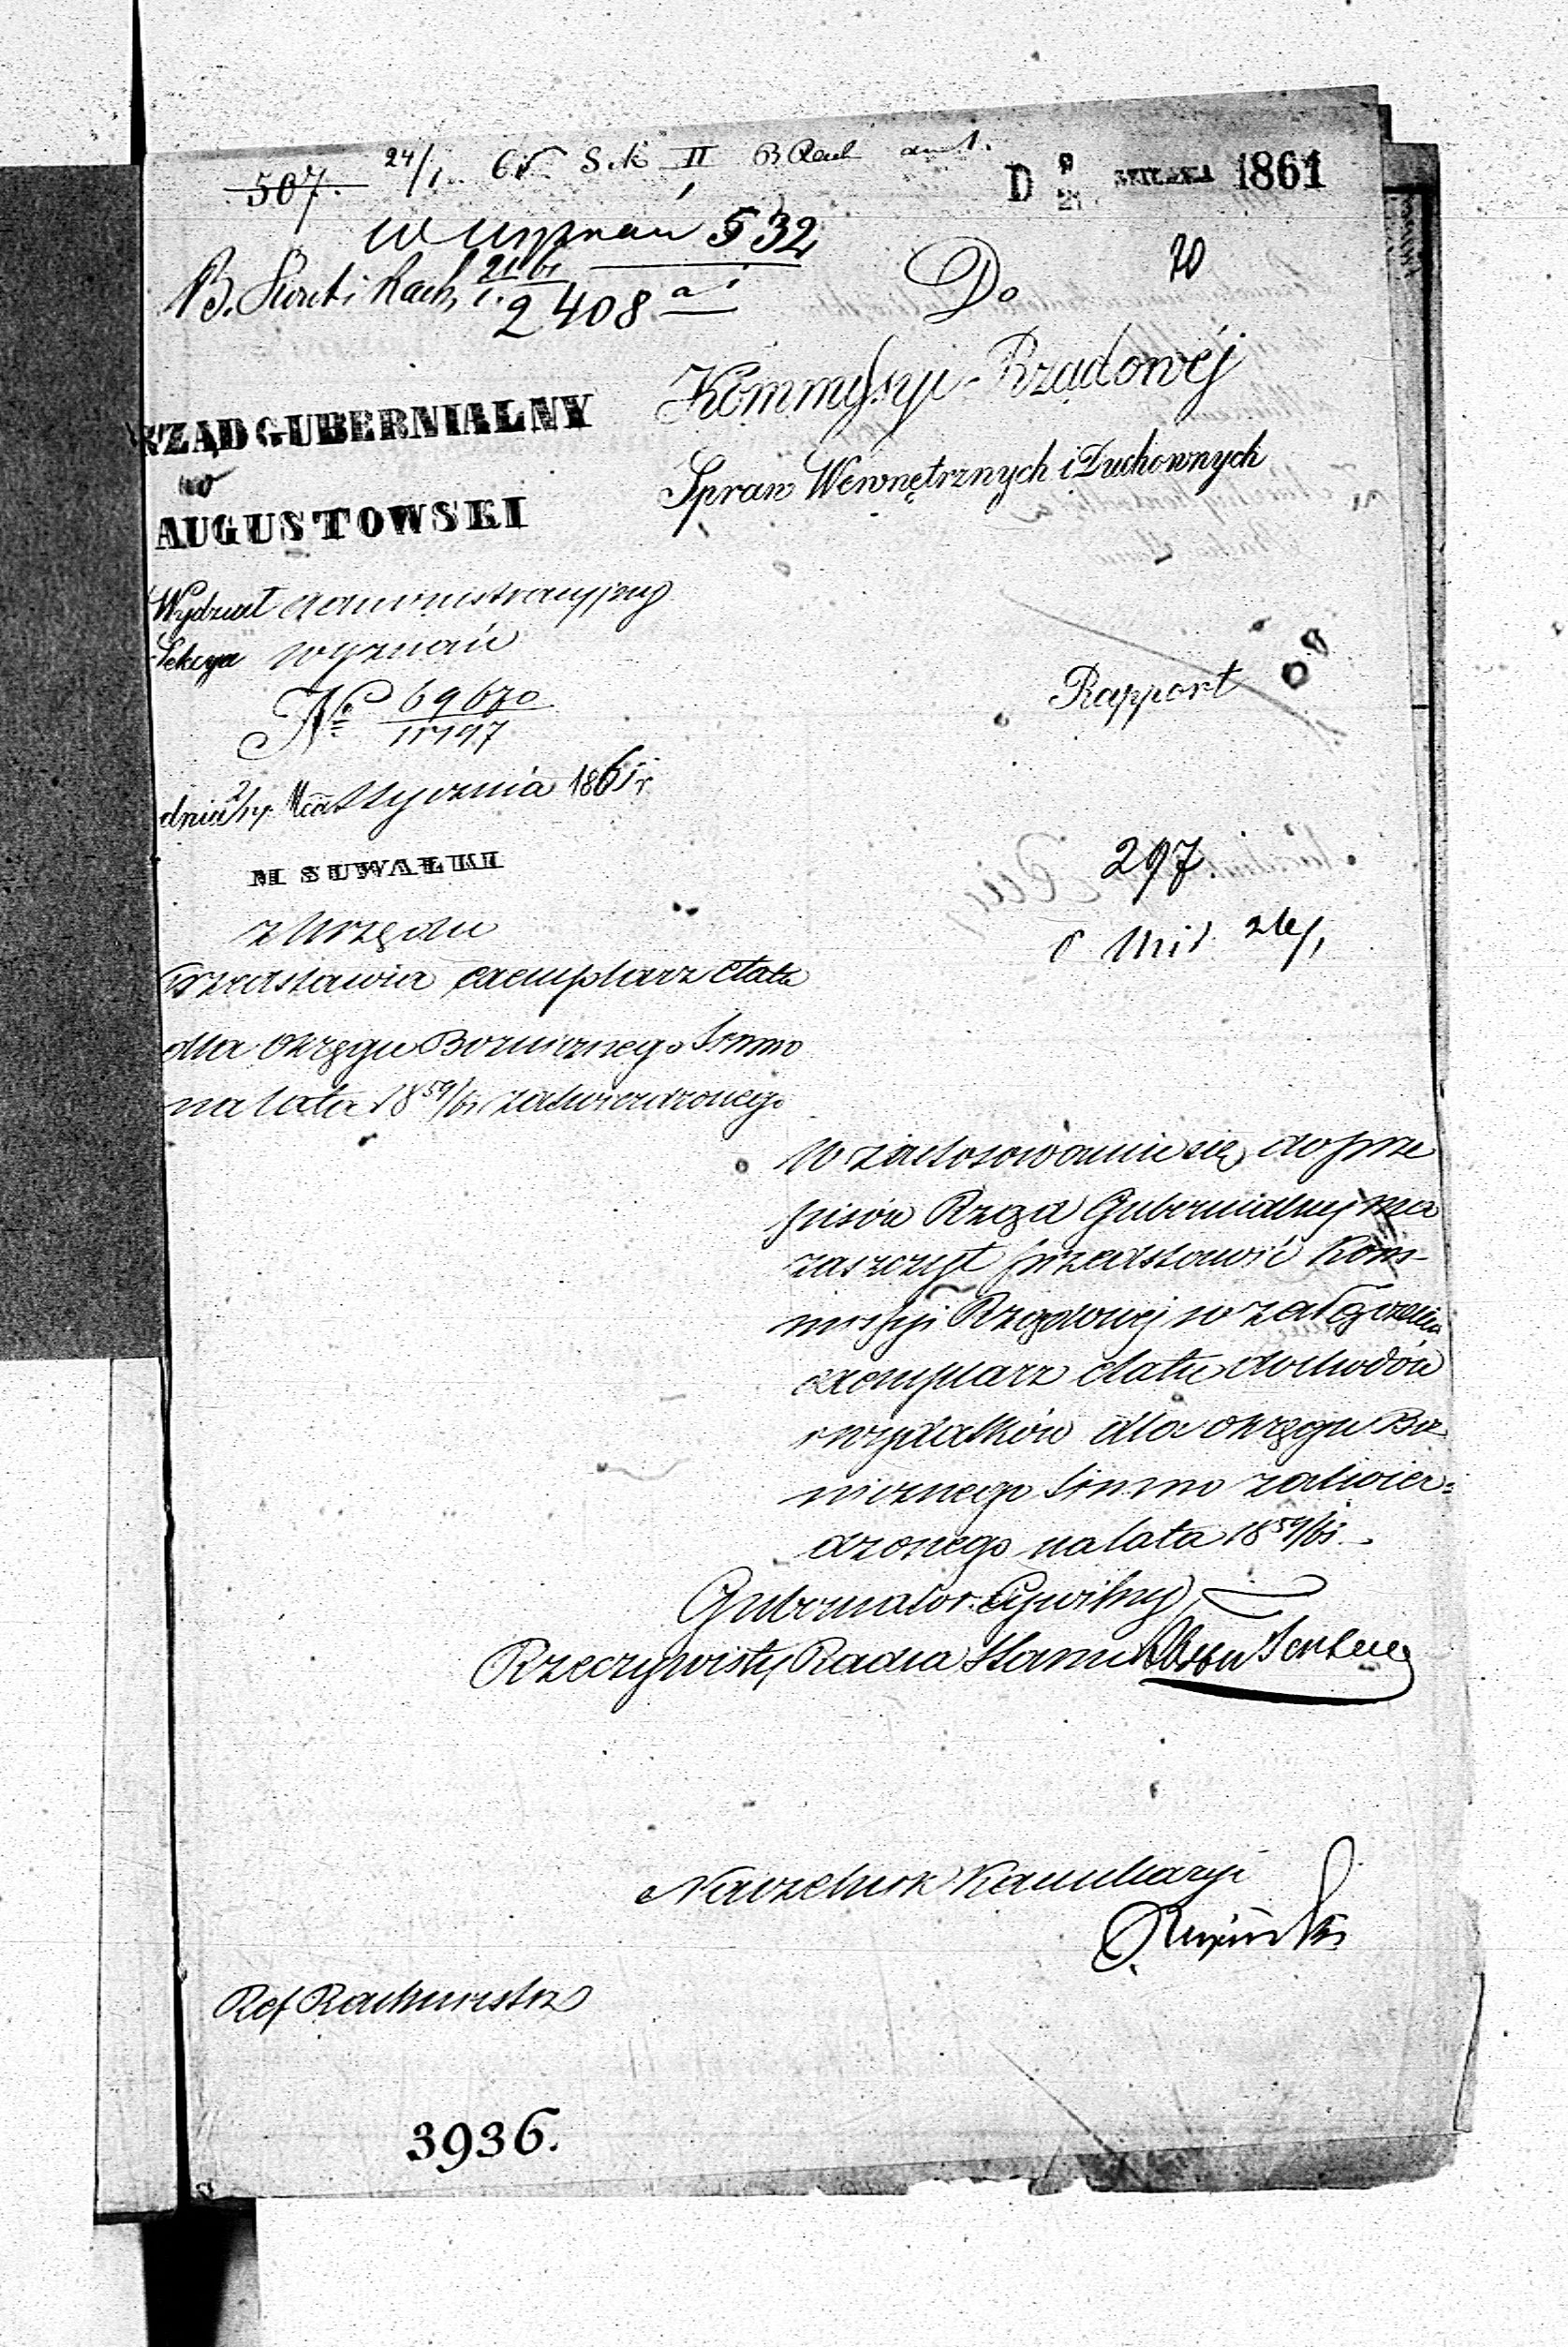 507. 24/1 61 Sek II B Rach
D STYCZNIA 1861
Wyznań 532
B. Kont i Rach, 21/1 61
2408
Do
20
Kommyssyi Rządowéj
Spraw Wewnętrznych i Duchownych
RZĄD GUBERNIALNY
AUGUSTOWSKI
Wydział Administracyjny
Sekcya Wyznań
No 69670
dnia 2/14 Mca Stycznia 1861 r
M SUWAŁKI
Rapport
297
z Urzędu
Przedstawia exemplarz etatu
dla Okręgu Bożniczego Simno
na lata 18 59/61 zatwierdzonego
W zastosowaniu się do prze
pisów Rząd Gubernialny ma
zaszczyt przedstawić Kom-
missyi Rządowej w załączeniu
exemplarz etatu dochodów
i wydatków dla okręgu Boż
nicznego Simno zatwier=
dzonego na lata 18 59/61
Gubernator Cywilny
Rzeczywisty Radca Stanu
Naczelnik Kancellaryi
Ref Rachmistrz
3936.